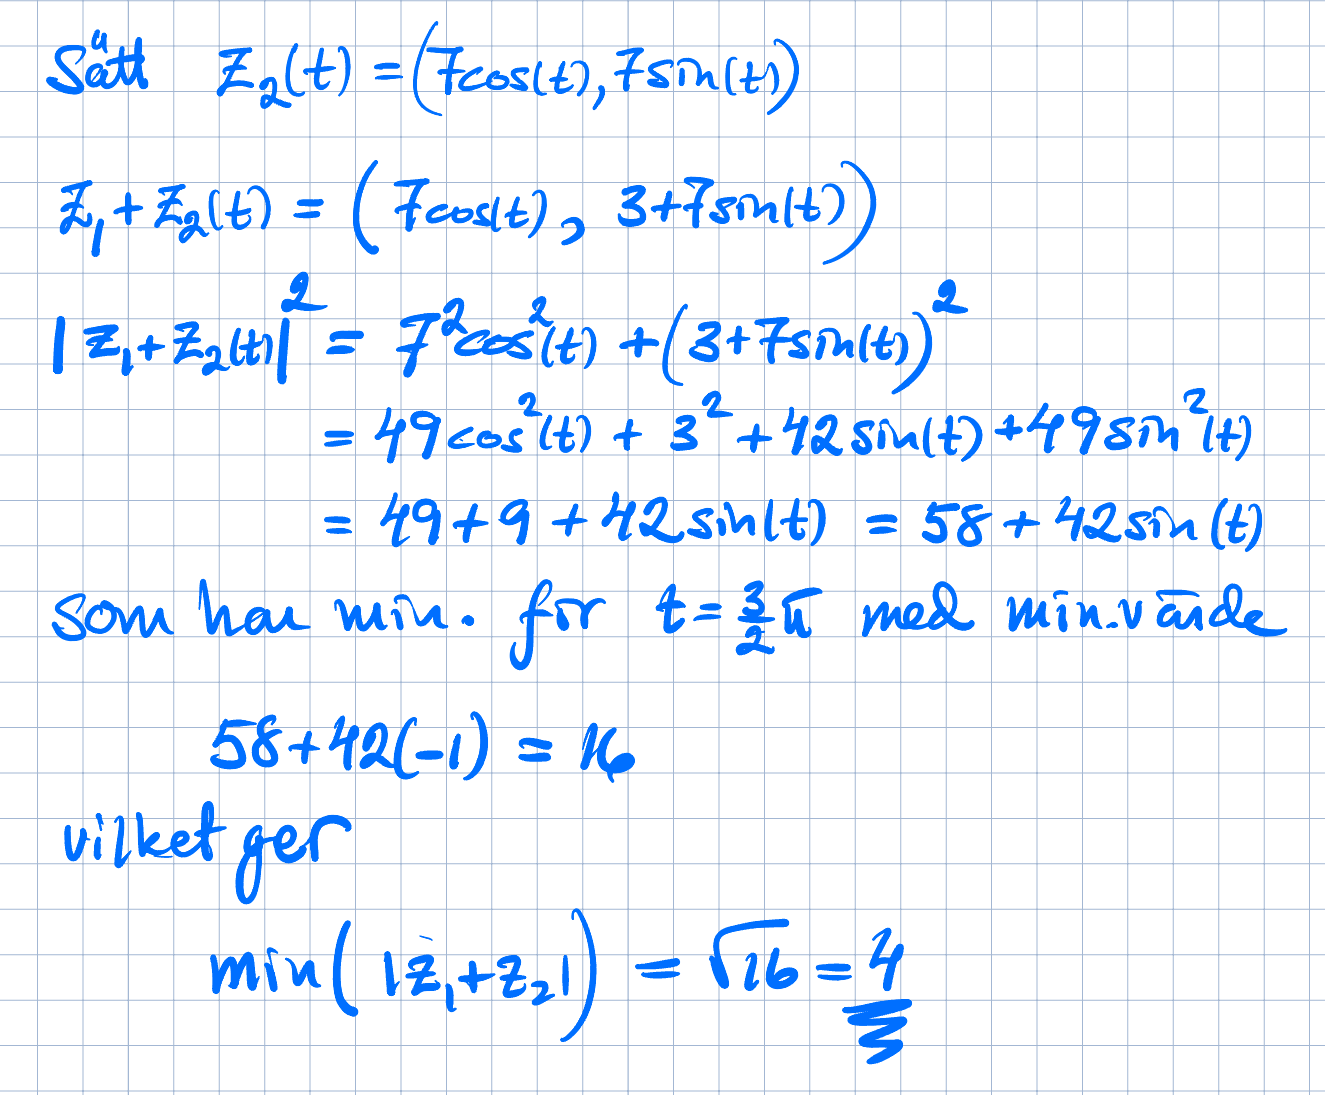 Sätt z₂(t) = (7cos(t), 7sin(t))
z₁+z₂(t) = (7cos(t), 3+7sin(t))
|z₁+z₂(t)|² = 7²cos²(t) + (3+7sin(t))²
= 49cos²(t) + 3² + 42sin(t) + 49sin²(t)
= 49+9+42sin(t) = 58+42sin(t)
som har min. för t = 3/2 π med min.värde
58+42(-1) = 16
vilket ger
min(|z₁+z₂|) = √16 = 4